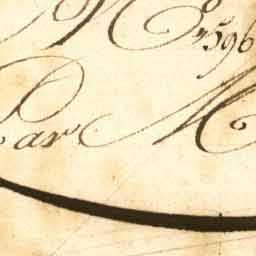 No 1596
Par M